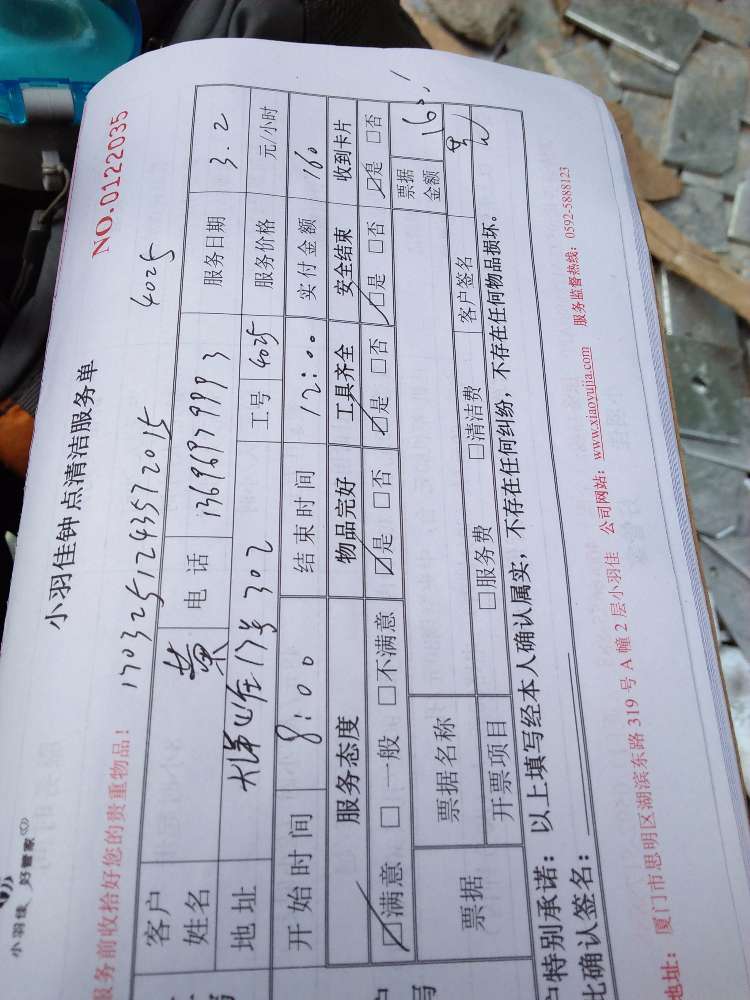 小羽佳 好管家
小羽佳钟点清洁服务单
NO.0122035
服务前收拾好您的贵重物品!
1703251243572015
4025
客户姓名 黄 电话 13696979993 服务日期 3.2
地址 17号302 工号 4025 服务价格 元/小时
开始时间 8:00 结束时间 12:00 实付金额 160
服务态度 物品完好 工具齐全 安全结束 收到卡片
☑满意 □一般 □不满意 ☑是 □否 ☑是 □否 ☑是 □否 ☑是 □否
票据 票据名称 票据金额
开票项目 □服务费 □清洁费 客户签名
户特别承诺:以上填写经本人确认属实,不存在任何纠纷,不存在任何物品损坏。
此确认签名:
地址: 厦门市思明区湖滨东路 319 号 A 幢 2 层小羽佳 公司网站:www.xiaoyujia.com 服务监督热线:0592-5888123